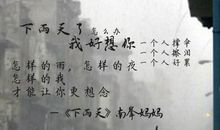 下雨天了怎么办
我好想你
一个人撑伞
一个人擦泪
一个人好累
怎样的雨，怎样的夜
怎样的我
才能让你更想念
—《下雨天》南拳妈妈